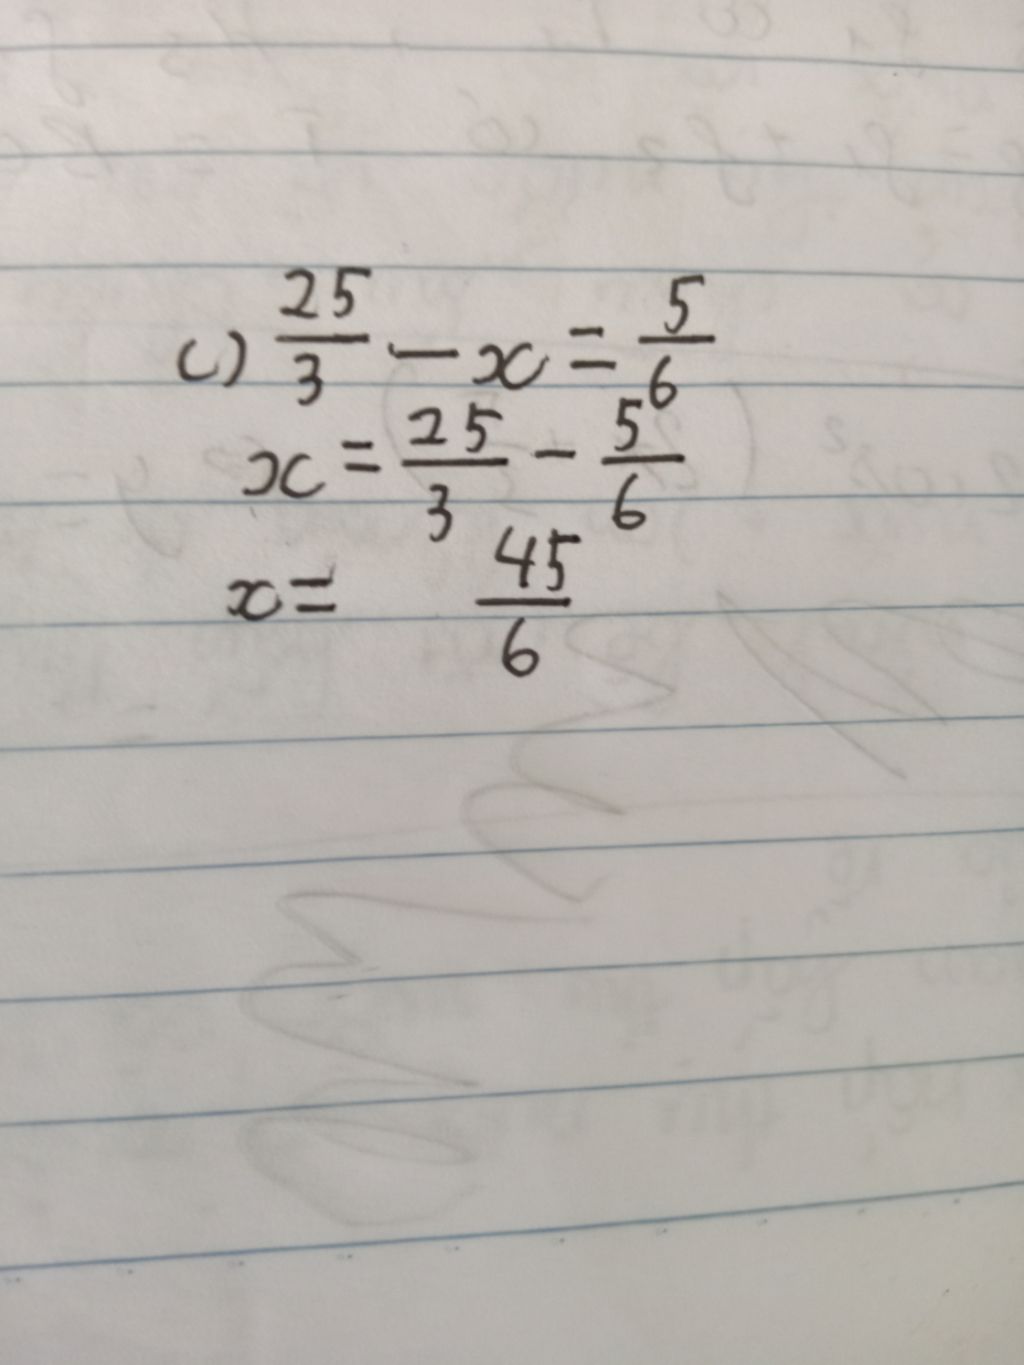 c) 25/3 - x = 5/6
x = 25/3 - 5/6
x = 45/6